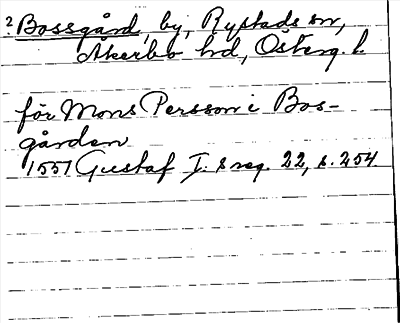 ? Bossgård, by, Rystads sn,
Åkerbo hd, Österg. l.
för Mons Persson i Bos-
gården
1551 Gustaf I:s reg. 22, s. 254